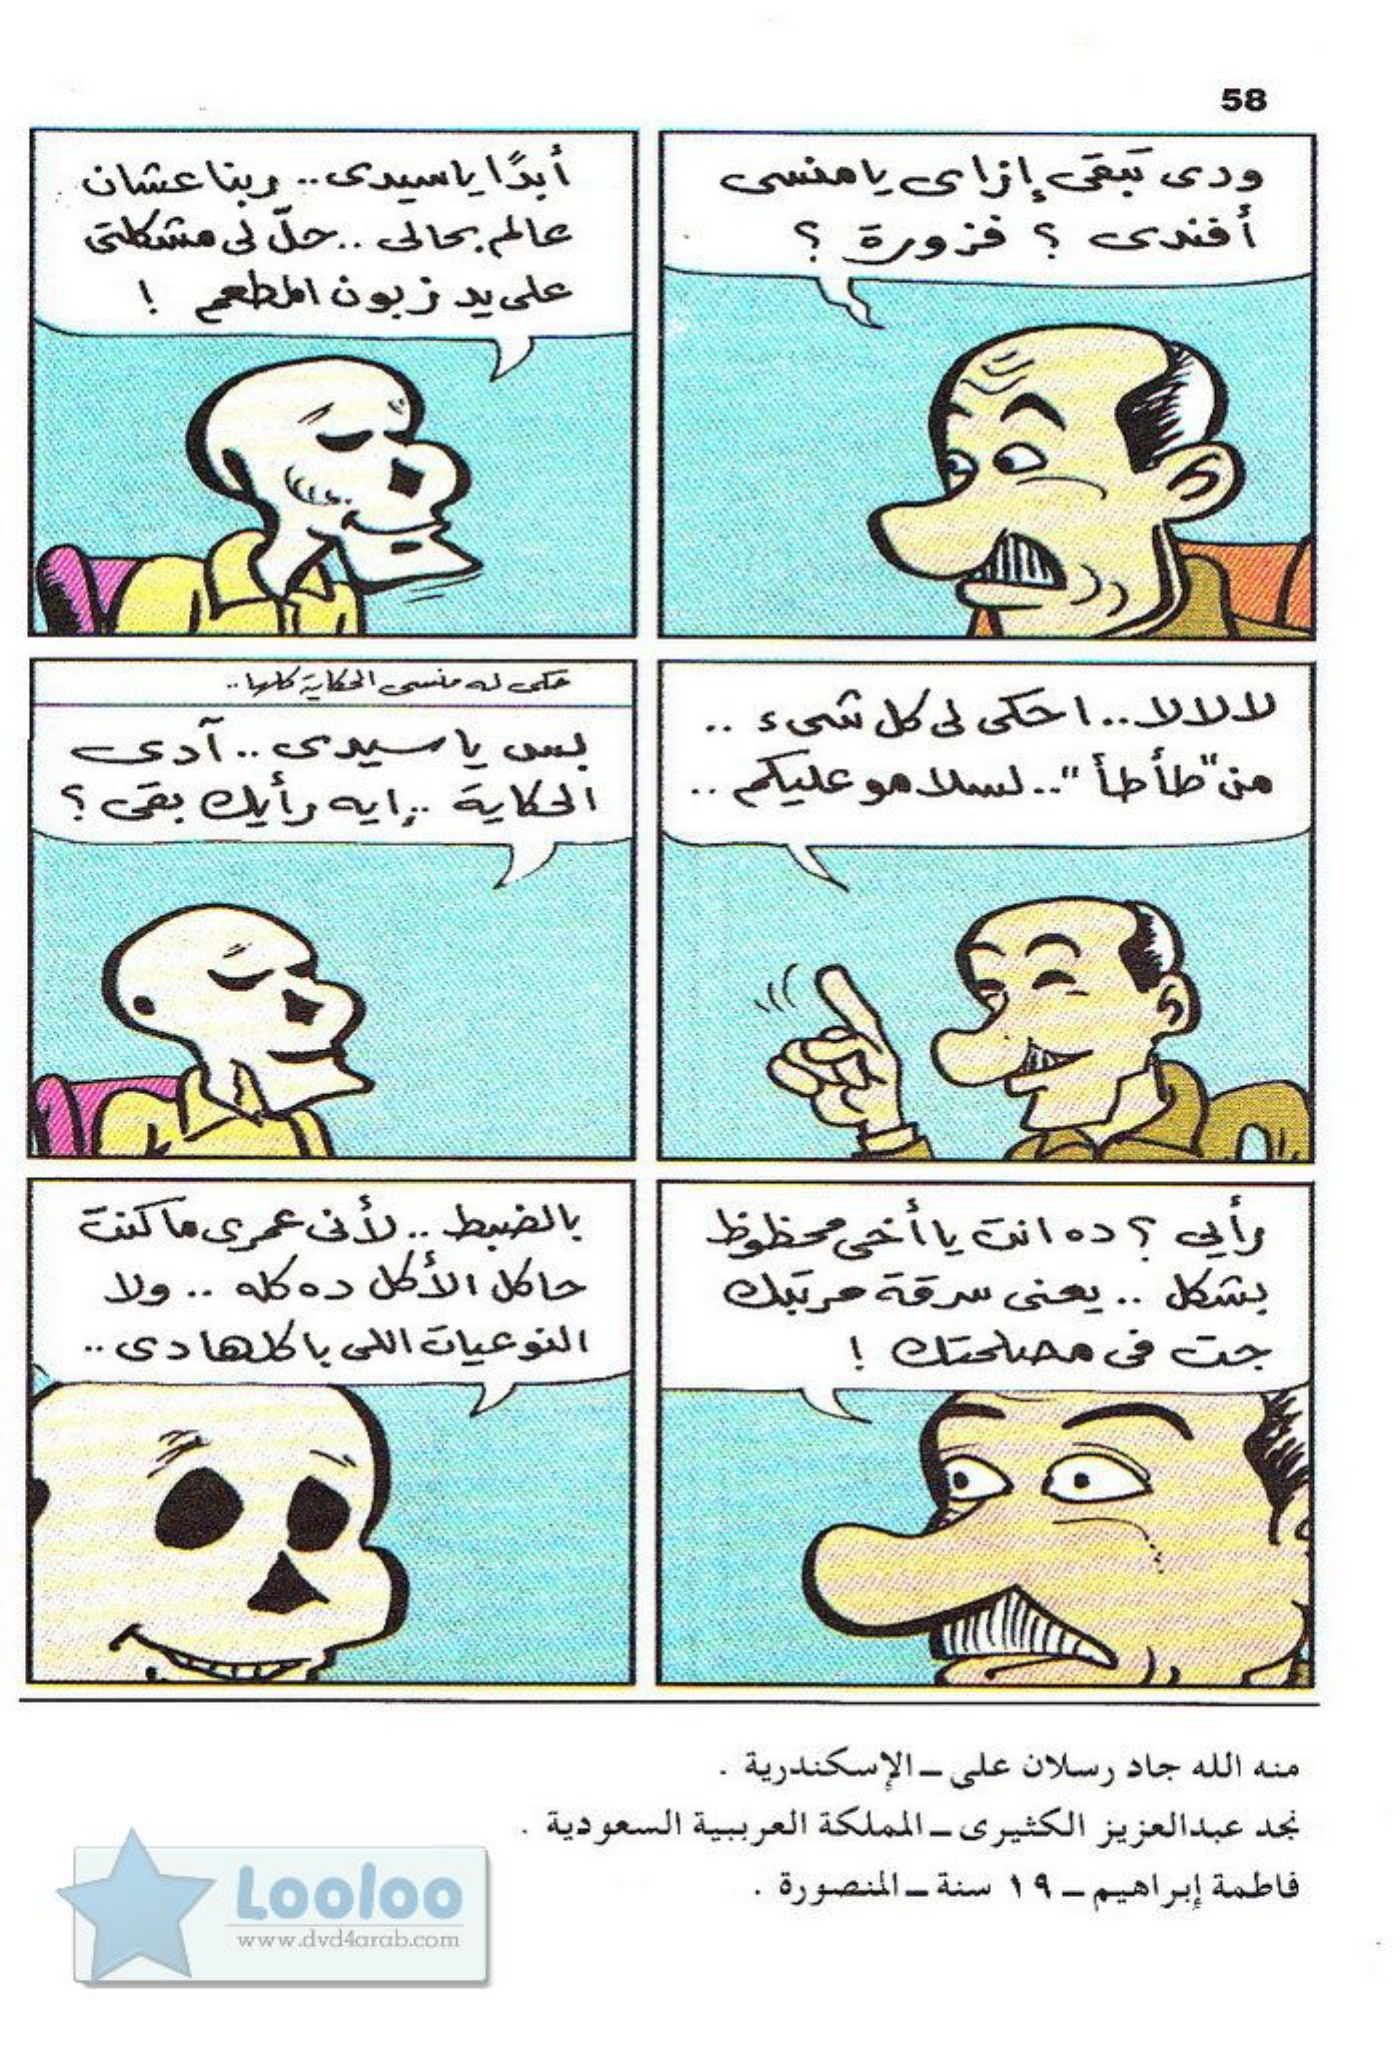 58
ودى تبقى إزاى يا منسى
أفندى ؟ فزورة ؟
أبدًا يا سيدى .. ربنا عشان
عالم بحالى .. حلّ لى مشكلتى
على يد زبون المطعم !
لالالا .. احكى لى كل شىء ..
من "طأطأ" .. لسلامو عليكم ..
حكى له منسى الحكاية كلها ..
بس يا سيدى .. آدى
الحكاية .. إيه رأيك بقى ؟
رأيى ؟ ده انت يا أخى محظوظ
بشكل .. يعنى سرقة مرتبك
جت فى مصلحتك !
بالضبط .. لأنى عمرى ما كنت
حاكل الأكل ده كله .. ولا
النوعيات اللى باكلها دى ..
منه الله جاد رسلان على ــ الإسكندرية .
نجد عبدالعزيز الكثيرى ــ المملكة العربية السعودية .
فاطمة إبراهيم ــ ١٩ سنة ــ المنصورة .
Looloo
www.dvd4arab.com